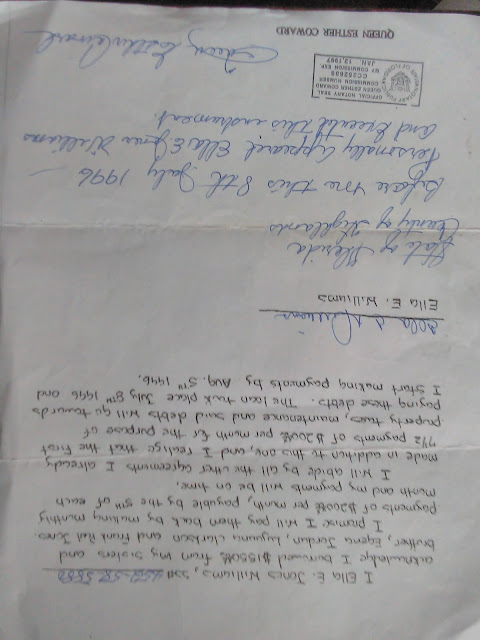 I Ella E. Jones Williams, SS#
acknowledge I borrowed from my sisters and
brother, Jordan, Clarkson and Frank Jones.
I promise I will pay them back by making monthly
payments of $200 per month, payable by the 5TH of each
month and my payments will be on time.
I will abide by all the other agreements already
made in addition to this one, and I realize that the first
7 1/2 payments of $200 per month for the purpose of
property taxes, maintenance and said debts will go towards
paying these debts. The loan took place July 8TH 1996 and
I start making payments by Aug. 5TH 1996.
Ella E. Williams
State of Florida
County of Highlands
Before me this 8th July 1996
Personally appeared Ella E Jones Williams
and this instrument.
OFFICIAL NOTARY SEAL
QUEEN ESTHER COWARD
COMMISSION NUMBER
MY COMMISSION EXP.
JAN. 13, 1997
NOTARY PUBLIC STATE OF FLORIDA
Queen Esther Coward
QUEEN ESTHER COWARD